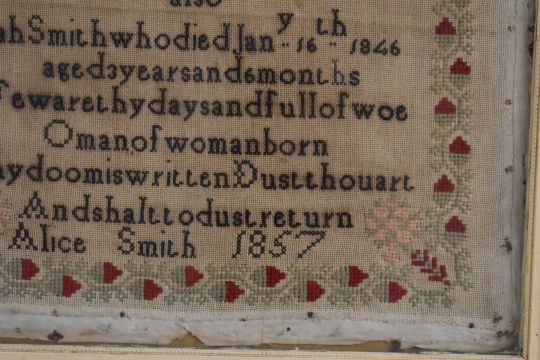 also
ah Smith who died Jan y 16 th 1846
aged 3 years and 6 months
Few are thy days and full of woe
O man of woman born
hy doom is written Dust thou art
And shalt to dust return
Alice Smith 1857